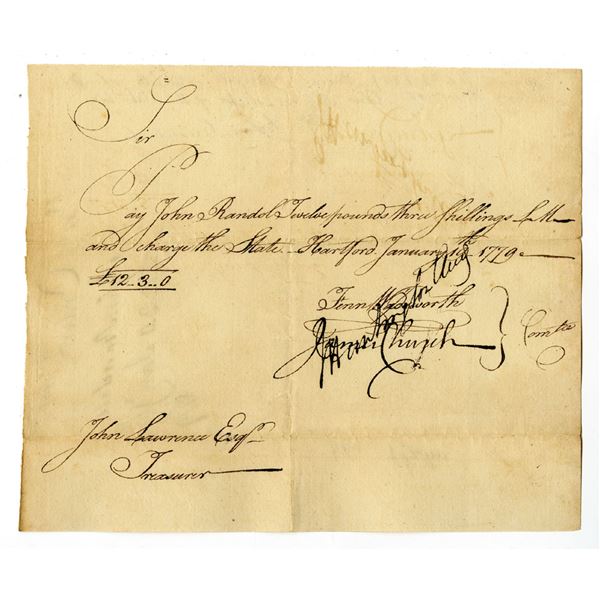 Sir
Pay John Randol Twelve pounds three Shillings L M
and charge the State Hartford January 19th 1779
£12..3..0
Fenn Wadsworth
James Church
Comtee
John Lawrence Esqr
Treasurer